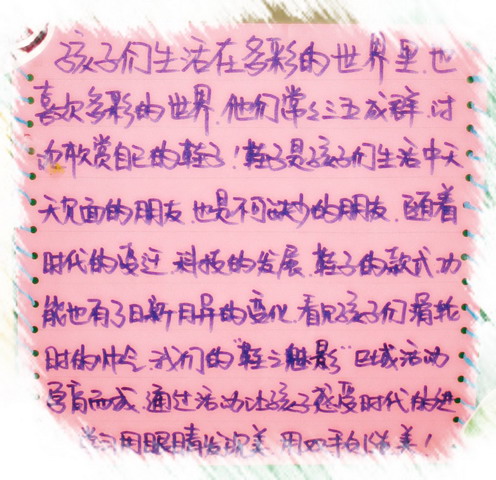 孩子们生活在多彩的世界里,也
喜欢多彩的世界,他们常常三五成群,讨
和欣赏自己的鞋子!鞋子是孩子们生活中天
天见面的朋友,也是不可缺少的朋友。随着
时代的变迁,科技的发展,鞋子的款式功
能也有了日新月异的变化,看见孩子们滑轮
时的,我们的“鞋之魅影”区域活动
孕育而成,通过活动让孩子感受时代的进
学习用眼睛发现美,用双手创造美!